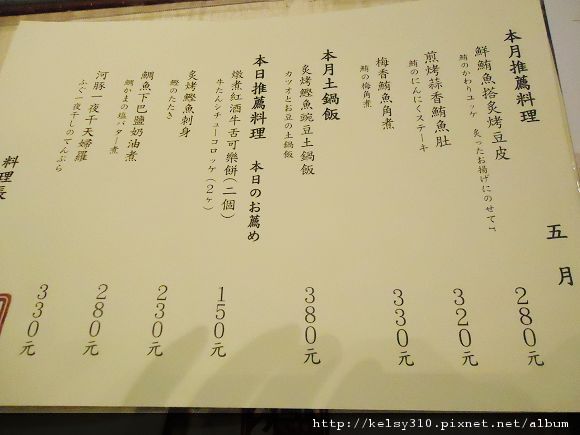 五月
本月推薦料理
鮮鮪魚搭炙烤豆皮
鮪のかわりユッケ 炙ったお揚げにのせて
280元
煎烤蒜香鮪魚肚
鮪のにんにくステーキ
320元
梅香鮪魚角煮
鮪の梅角煮
330元
本月土鍋飯
炙烤鰹魚豌豆土鍋飯
カツオとお豆の土鍋飯
380元
本日推薦料理 本日のお薦め
燉煮紅酒牛舌可樂餅(二個)
牛たんシチューコロッケ(2ヶ)
150元
炙烤鰹魚刺身
鰹のたたき
230元
鯛魚下巴鹽奶油煮
鯛かまの塩バター煮
280元
河豚一夜干天婦羅
ふぐ一夜干しのてんぷら
330元
料理長
http://kelsy310.pixnet.net/album